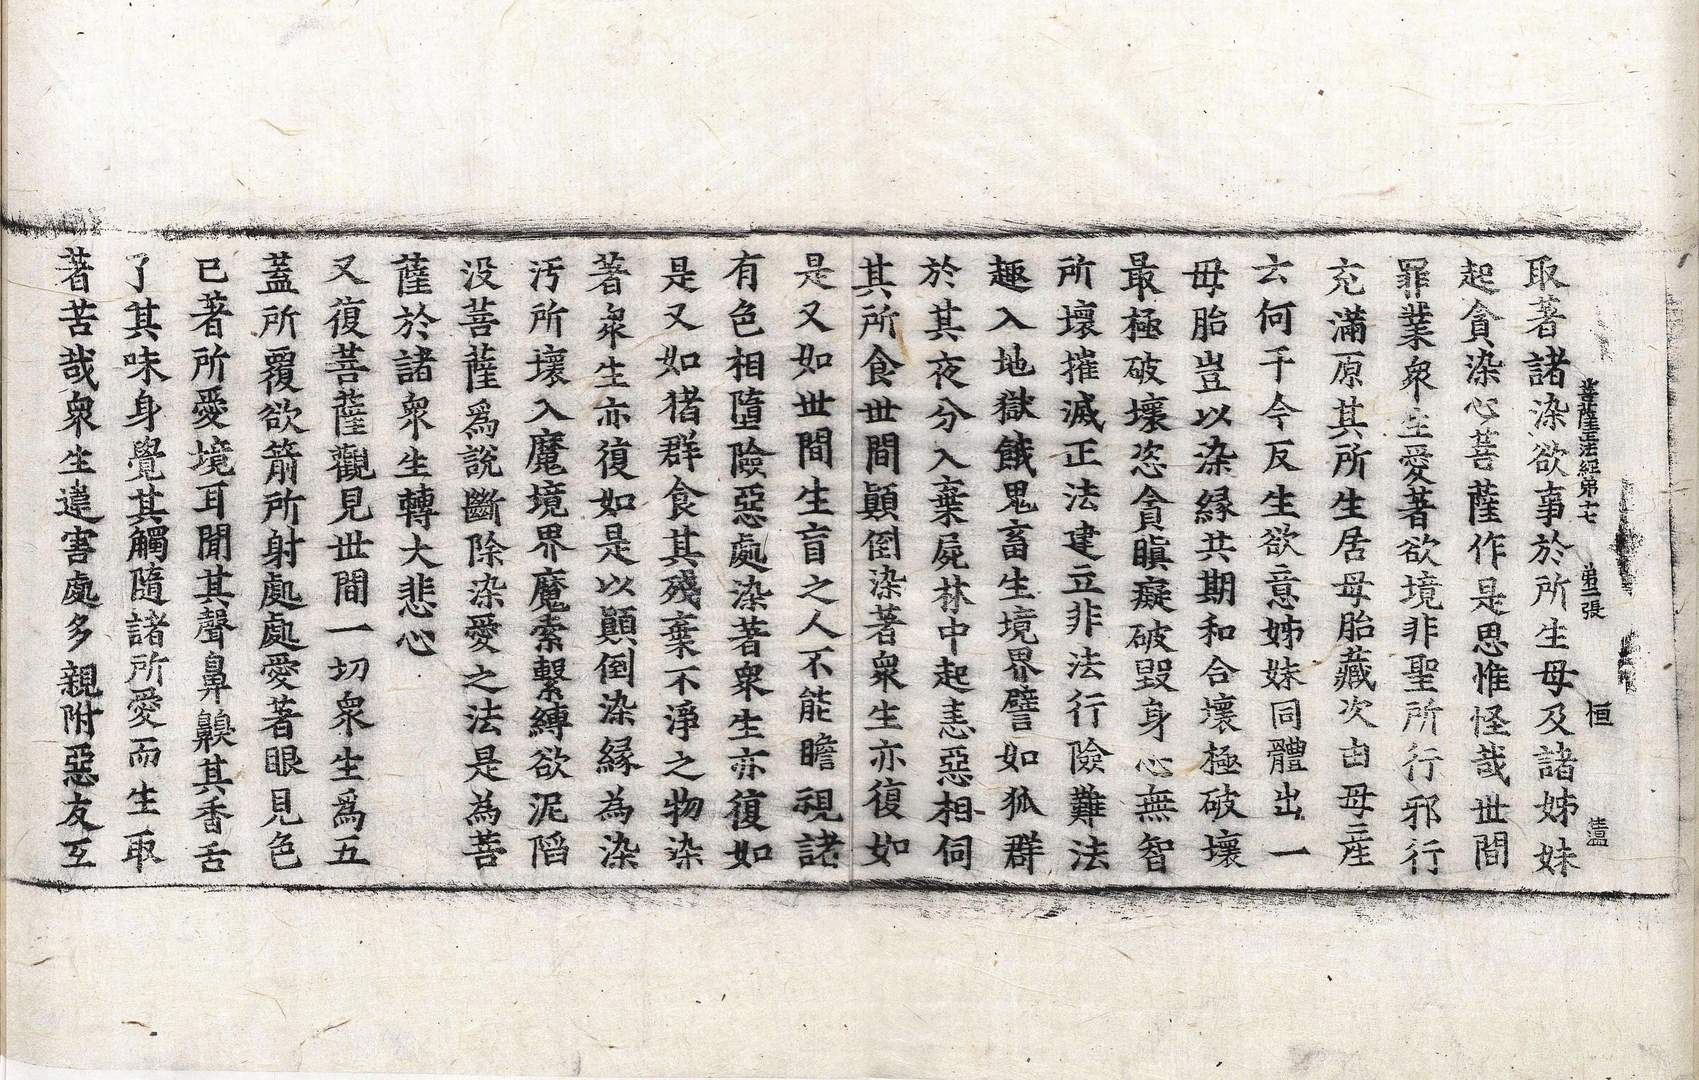 菩薩正法經第十七 第二張 恒
取著諸染欲事於所生母及諸姊妹
起貪染心菩薩作是思惟怪哉世間
罪業衆生愛著欲境非聖所行邪行
充滿原其所生居母胎藏次由母產
云何于今反生欲意姊妹同體出一
母胎豈以染縁共期和合壞極破壞
最極破壞恣貪瞋癡破毀身心無智
所壞摧滅正法建立非法行險難法
趣入地獄餓鬼畜生境界譬如狐群
於其夜分入棄屍林中起恚惡相伺
其所食世間顚倒染著衆生亦復如
是又如世間生盲之人不能瞻視諸
有色相墮險惡處染著衆生亦復如
是又如猪群食其殘棄不淨之物染
著衆生亦復如是以顚倒染縁為染
汚所壞入魔境界魔索繫縛欲泥陷
没菩薩爲說斷除染愛之法是為菩
薩於諸衆生轉大悲心
又復菩薩觀見世間一切衆生爲五
蓋所覆欲箭所射處處愛著眼見色
已著所愛境耳聞其聲鼻齅其香舌
了其味身覺其觸隨諸所愛而生取
著苦哉衆生違害處多親附惡友互